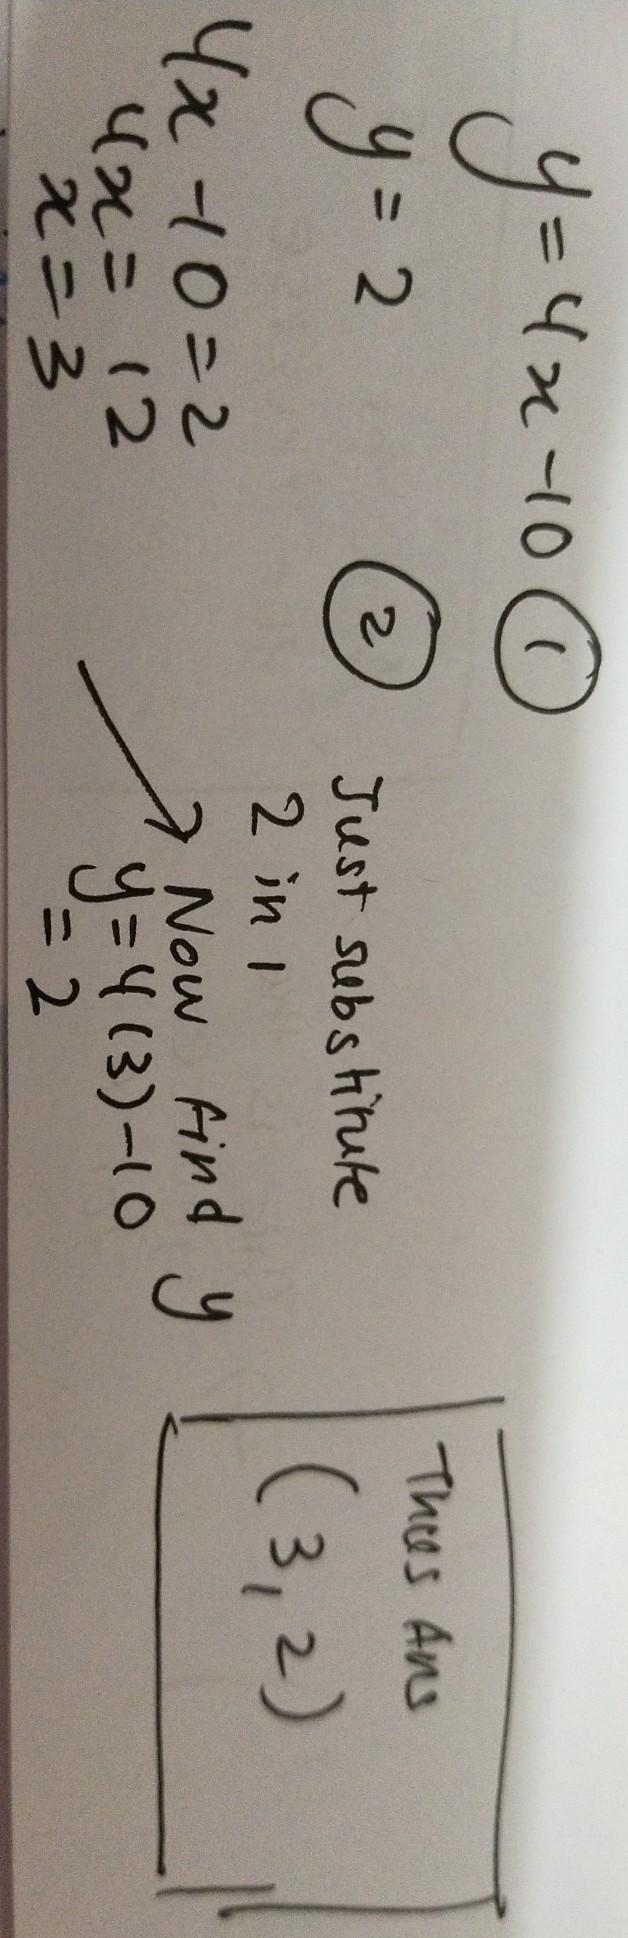 y = 4x - 10 ①
y = 2 ②
Just substitute
2 in 1
4x - 10 = 2
4x = 12
x = 3
Now find y
y = 4(3) - 10
= 2
Thus Ans
(3, 2)